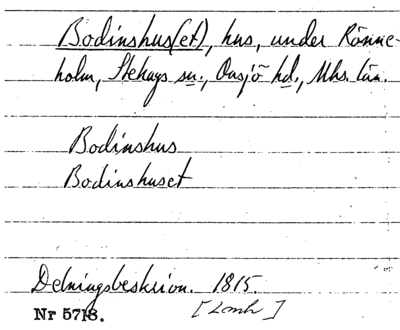 Bodinshus(et), hus, under Rönne-
holm, Stehags sn., Onsjö hd., Mhs. län.
Bodinshus
Bodinshuset
Delningsbeskrivn. 1815.
Nr 5718. [Lmh]